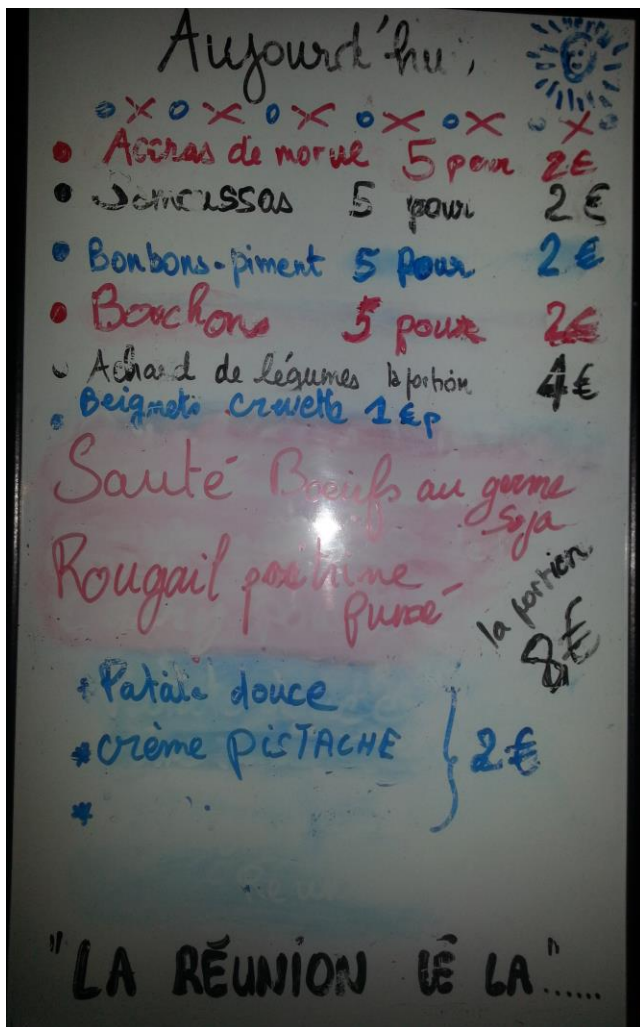 Aujourd'hui,
Accras de morue 5 pour 2€
Samoussas 5 pour 2€
Bonbons-piment 5 pour 2€
Bouchons 5 pour 2€
Achard de légumes la portion 4€
Beignets crevette 1€p
Sauté Boeufs au germe
soja
Rougail
fumé
la portion
8€
Patate douce
crème PISTACHE
2€
"LA RÉUNION LÉ LA"......